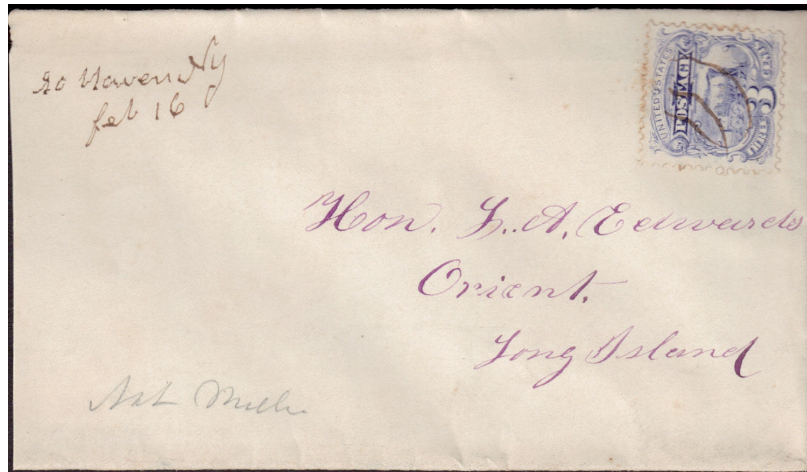 So Haven NY
feb 16
UNITED STATES
POSTAGE
3
THREE CENTS
Hon. L. A. Edwards
Orient.
Long Island
Nat Mille